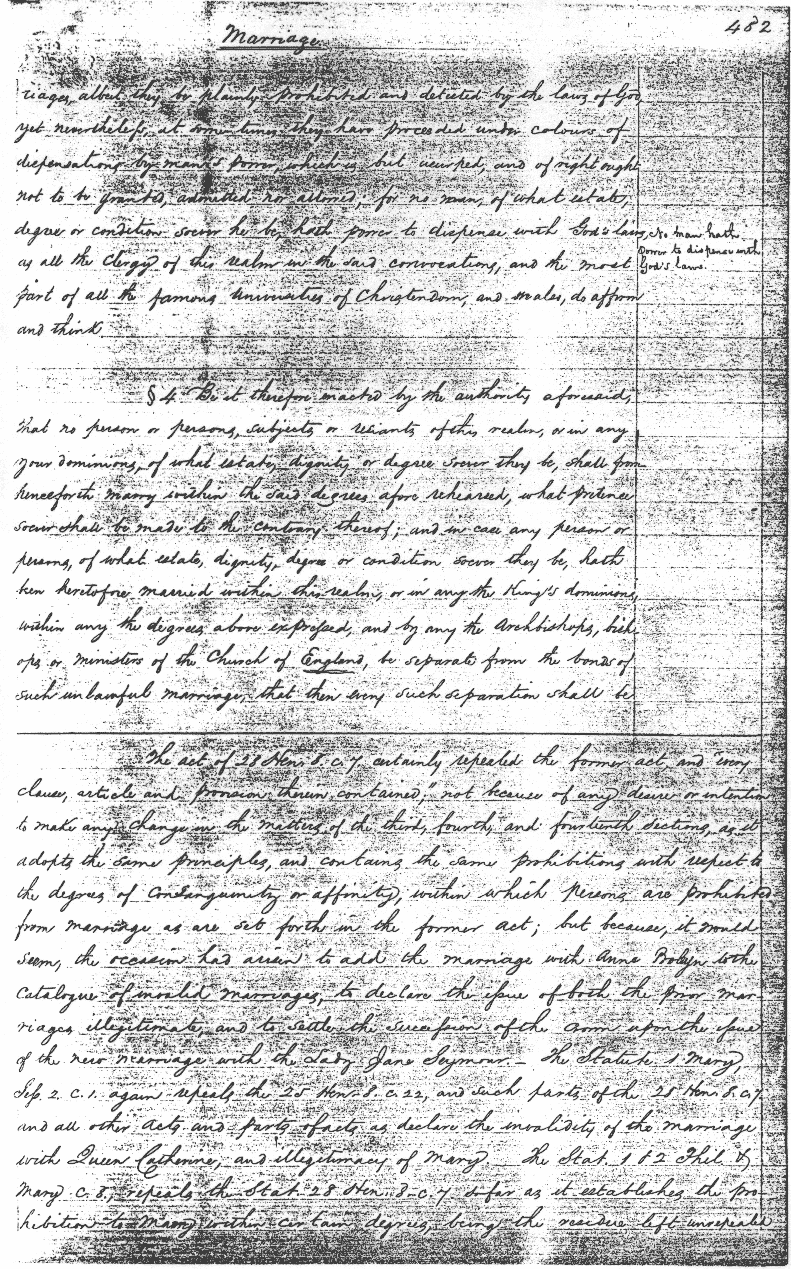 482
Marriage.
riages, albeit they be plainly prohibited and detested by the laws of God
yet nevertheless, at some times they have proceeded under colours of
dispensations by man's power, which is but usurped, and of right ought
not to be granted, admitted nor allowed; for no man, of what estate,
degree or condition soever he be, hath power to dispense with God's laws,
as all the Clergy of this realm in the said convocations, and the most
part of all the famous universities of Christendom, and we also, do affirm
and think
No man hath
power to dispense with
God's laws.
§ 4 Be it therefore enacted by the authority aforesaid;
that no person or persons, subjects or resiants of this realm, or in any
your dominions, of what estate, dignity or degree soever they be, shall from
henceforth marry within the said degrees afore rehearsed, what pretence
soever shall be made to the contrary thereof; and in case any person or
persons, of what estate, dignity, degree or condition soever they be, hath
been heretofore married within this realm, or in any the King's dominions,
within any the degrees above expressed, and by any the Archbishops, bish
ops or ministers of the Church of England, be separate from the bonds of
such unlawful marriage, that then every such separation shall be
The act of 28 Hen. 8. c. 7 certainly repealed the former act, and "every
clause, article and provision therein contained," not because of any desire or intention
to make any change in the matters of the third, fourth, and fourteenth sections, as it
adopts the same principles, and contains the same prohibitions with respect to
the degrees of consanguinity or affinity, within which persons are prohibited
from marriage as are set forth in the former act; but because, it would
seem, the occasion had arisen to add the marriage with Anne Boleyn to the
Catalogue of invalid marriages, to declare the issue of both the prior mar-
riages illegitimate, and to settle the succession of the crown upon the issue
of the new marriage with the Lady Jane Seymour. – The Statute 1 Mary,
Sess. 2. c. 1. again repeals the 25 Hen. 8. c. 22, and such parts of the 28 Hen. 8. c. 7
and all other acts and parts of acts as declare the invalidity of the marriage
with Queen Catherine, and illegitimacy of Mary The Stat. 1 & 2 Phil. &
Mary c. 8, repeals the Stat. 28 Hen. 8. c. 7 so far as it establishes the pro-
hibition to Marry within certain degrees, being the residue left unrepealed